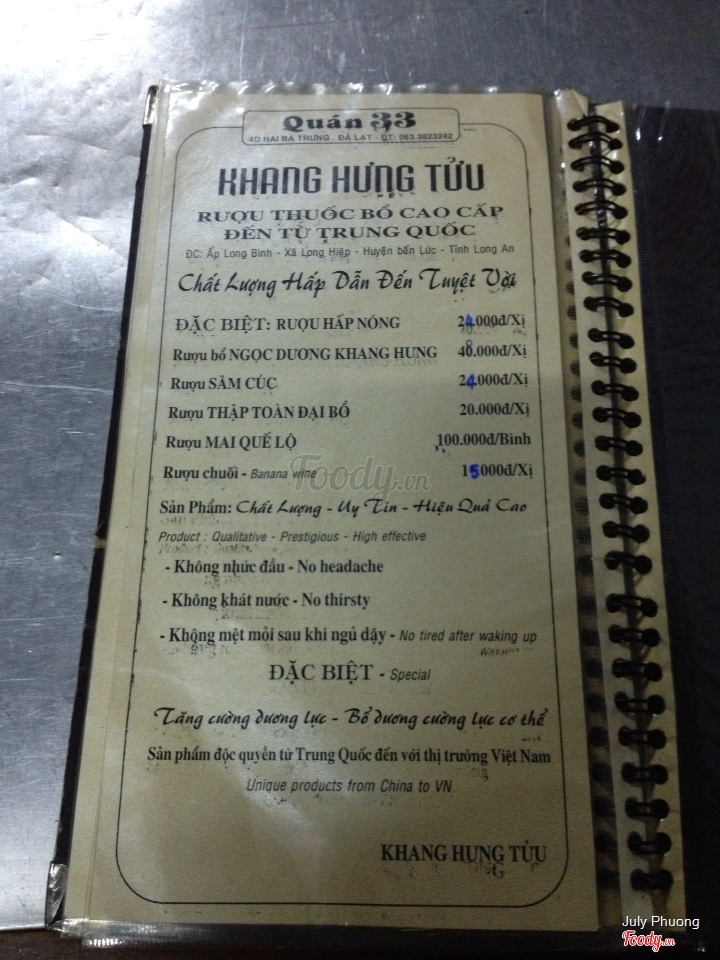 Quán 33
4D HAI BÀ TRƯNG . ĐÀ LẠT - ĐT: 063.3823242
KHANG HƯNG TỬU
RƯỢU THUỐC BỔ CAO CẤP
ĐẾN TỪ TRUNG QUỐC
ĐC: Ấp Long Bình - Xã Long Hiệp - Huyện bến Lức - Tỉnh Long An
Chất Lượng Hấp Dẫn Đến Tuyệt Vời
ĐẶC BIỆT: RƯỢU HẤP NÓNG 24.000đ/Xị
Rượu bổ NGỌC DƯƠNG KHANG HƯNG 48.000đ/Xị
Rượu SÂM CÚC 24.000đ/Xị
Rượu THẬP TOÀN ĐẠI BỔ 20.000đ/Xị
Rượu MAI QUẾ LỘ 100.000đ/Bình
Rượu chuối - Banana wine 15000đ/Xị
Sản Phẩm: Chất Lượng - Uy Tín - Hiệu Quả Cao
Product : Qualitative - Prestigious - High effective
- Không nhức đầu - No headache
- Không khát nước - No thirsty
- Không mệt mỏi sau khi ngủ dậy - No tired after waking up
ĐẶC BIỆT - Special
Tăng cường dương lực - Bổ dương cường lực cơ thể
Sản phẩm độc quyền từ Trung Quốc đến với thị trường Việt Nam
Unique products from China to VN
KHANG HƯNG TỬU
Foody.vn
July Phuong
Foody.vn